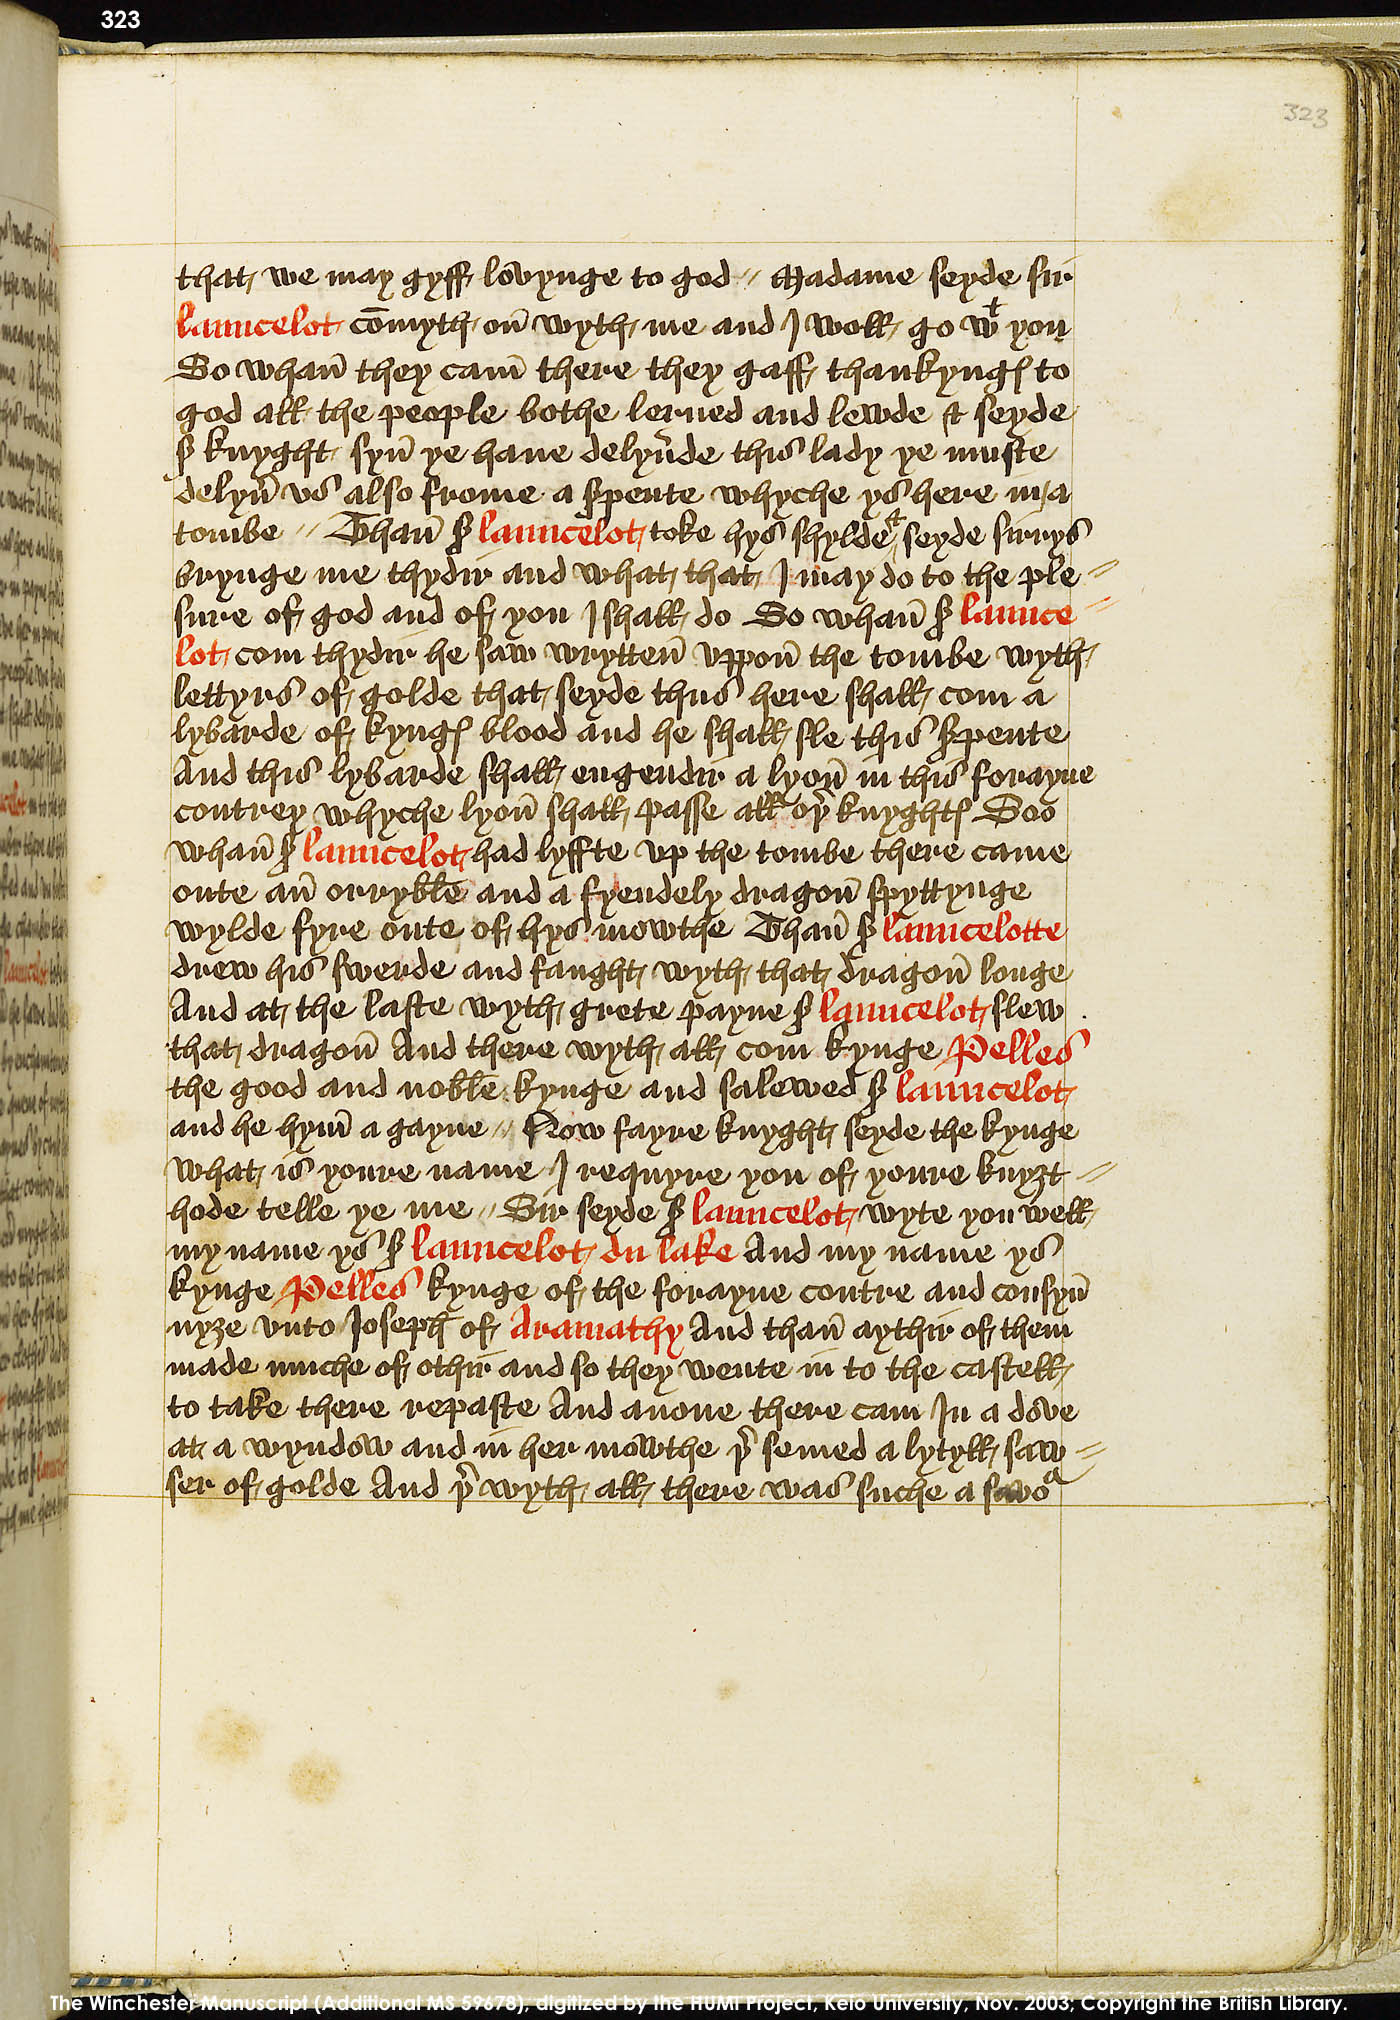 323
323
that we may gyff lovynge to god // Madame seyde sir
launcelot co̅myth on̅ wyth me and I woll go wᵗ you
So whan̅ they cam̅ there they gaff thankyngꝭ to
god all the people bothe lerned and lewde & seyde
sꝰ knyght syn̅ ye haue delyu̅de this lady ye muste
delyu̅ vs also frome a sꝑpente whyche ys here in a
tombe // Than̅ sꝰ launcelot toke hys shylde & seyde sirrys
brynge me thydir and what that I may do to the ple //
sure of god and of you I shall do So whan̅ sꝰ launce //
lot com thydir he saw wrytten̅ vppon̅ the tombe wyth
lettyrs of golde that seyde thus here shall com a
lybarde of kyngꝭ blood and he shall sle this sꝑpente
And this lybarde shall engendir a lyon̅ in this forayne
contrey whyche lyon̅ shall passe all oþꝰ knyghtꝭ Soo
whan̅ sꝰ launcelot had lyffte vp the tombe there came
oute an̅ orryble and a fyendely dragon̅ spyttynge
wylde fyre oute of hys mowthe Than̅ sꝰ launcelotte
drew his swerde and faught wyth that dragon̅ longe
And at the laste wyth grete payne sꝰ launcelot slew
that dragon̅ And there wyth all com kynge Pelles
the good and noble kynge and salewed sꝰ launcelot
and he hym̅ a gayne // Now fayre knyght seyde the kynge
what is youre name I requyre you of youre knyȝt //
hode telle ye me // Sir seyde sꝰ launcelot wyte you well
my name ys sꝰ launcelot du lake And my name ys
kynge Pelles kynge of the forayne contre and cousyn̅
nyȝe vnto Joseph of Aramathy And than̅ aythir of them
made muche of othir and so they wente in to the castell
to take there repaste And anone there cam In a dove
at a wyndow and in her mowthe þꝰ semed a lytyll saw //
ser of golde And þꝰ wyth all there was suche a savoᵃ
The Winchester Manuscript (Additional MS 59678), digitized by the HUMI Project, Keio University, Nov. 2003; Copyright the British Library.